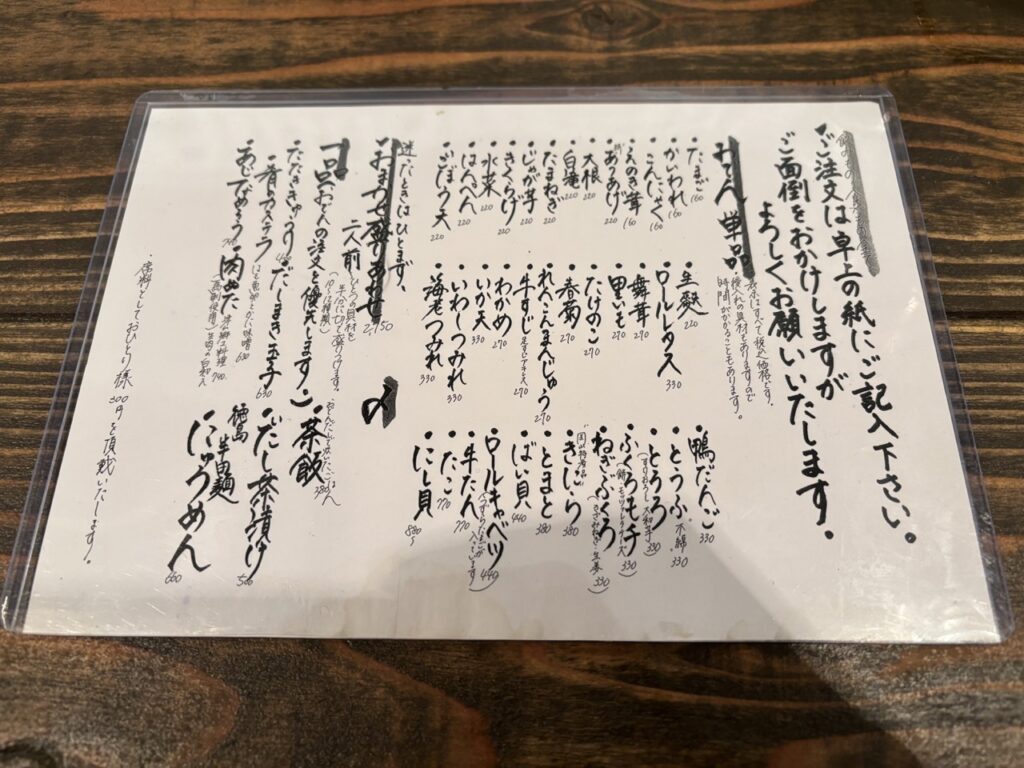 ・ご注文は卓上の紙にご記入下さい。
ご面倒をおかけしますが
よろしくお願いいたします。
おでん単品
表示はすべて税込価格です。
時間がかかることもあります。
・たまご 160
・かいわれ 160
・こんにゃく 160
・えのき茸 160
・あつあげ 220
・大根 220
・白滝 220
・たまねぎ 220
・じゃが芋 220
・きくらげ 220
・水菜 220
・はんぺん 220
・ごぼう天 220
・生麩 220
・ロールレタス 330
・舞茸 270
・里いも 270
・たけのこ 270
・春菊 270
・れんこんまんじゅう 270
・牛すじ 270
・わかめ 270
・いか天 330
・いわしつみれ 330
・海老つみれ 330
・鴨だんご 330
・とうふ 木綿 330
・とろろ 330
・ふくろモチ 330
・ねぎぶくろ 330
・きじら 380
・とまと 380
・ばい貝 440
・ロールキャベツ 440
(うずらたまごが入っています)
・牛たん 770
・たこ 770
・にし貝 880〜
迷ったときはひとまず、
・おまかせ盛りあわせ 2750
二人前
一品 (おでんの注文を優先します)
・たたききゅうり
・だしまき玉子 630
・肉ぬた
・茶飯 380
・だし茶漬け
徳島 半田麺
にゅうめん 660
・席料としておひとり様300円を頂戴いたします。